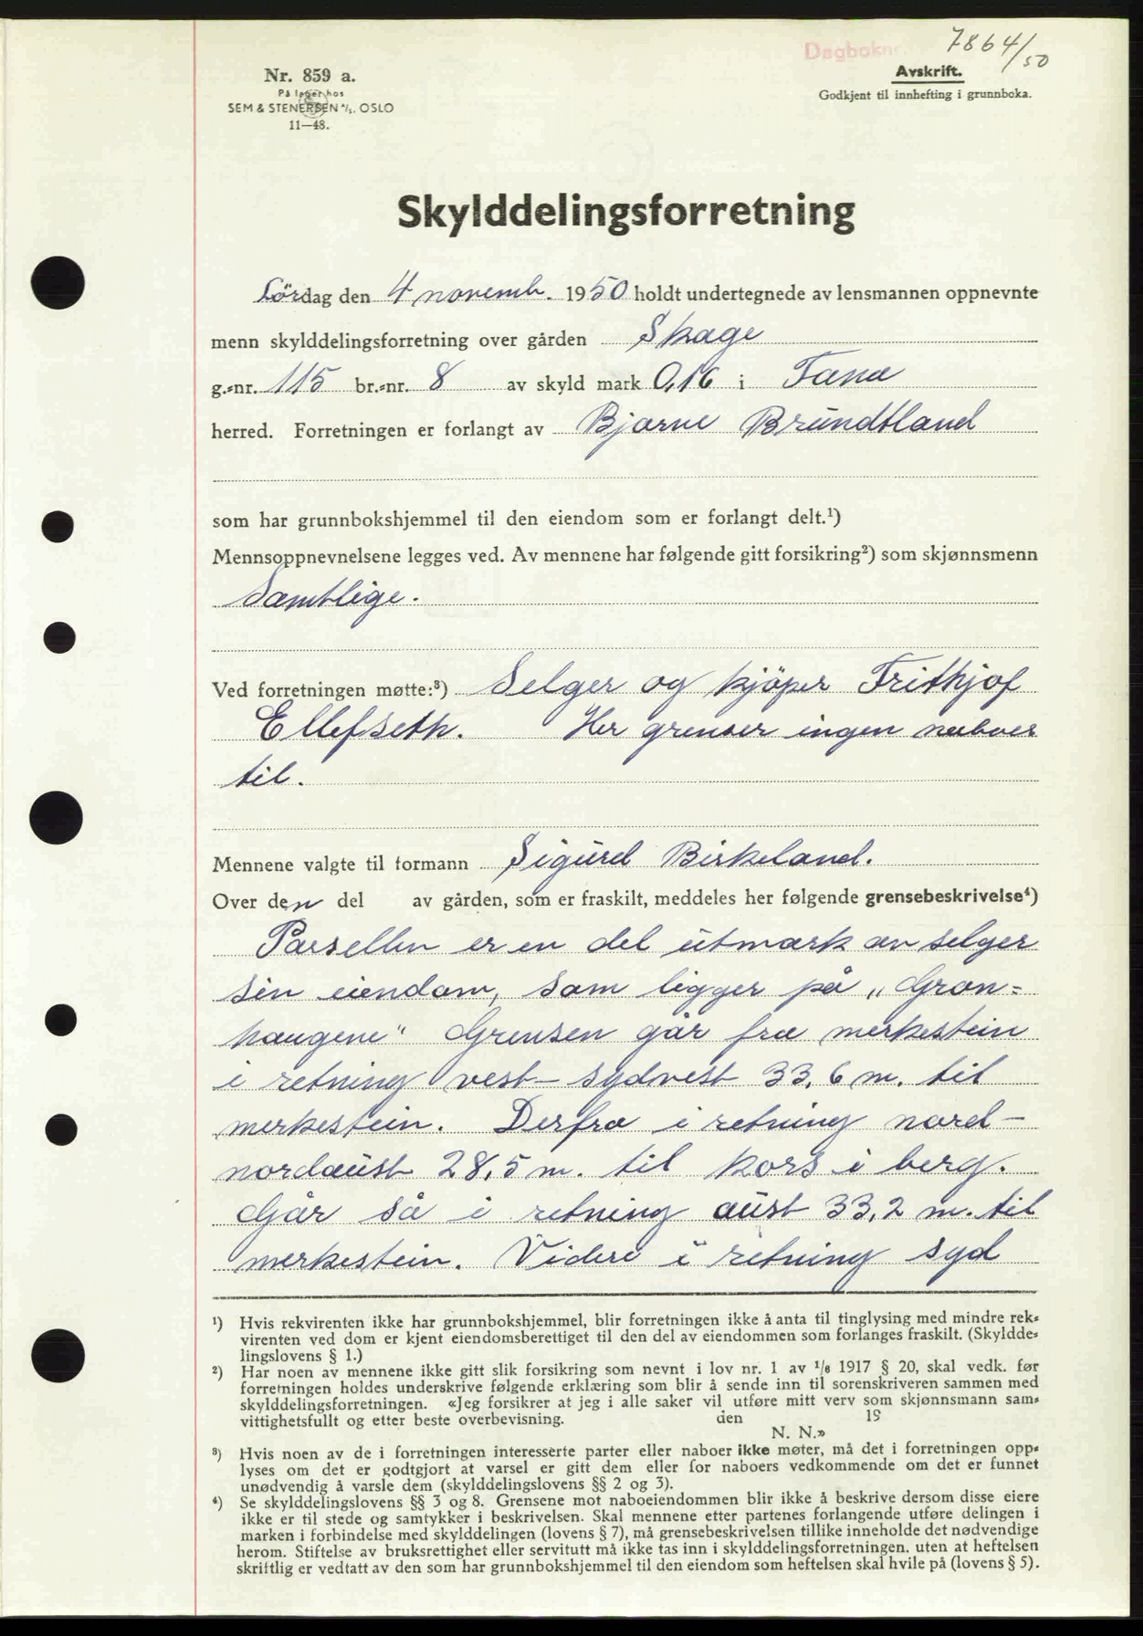 Dagbokn 7864/50
Nr. 859 a.
På lager hos
SEM & STENERSEN A/S. OSLO
11—48.
Avskrift.
Godkjent til innhefting i grunnboka.
Skylddelingsforretning
Lördag den 4 novemb. 1950 holdt undertegnede av lensmannen oppnevnte
menn skylddelingsforretning over gården Skage
g.-nr. 115 br.-nr. 8 av skyld mark 0,16 i Fana
herred. Forretningen er forlangt av Bjarne Brundtland
som har grunnbokshjemmel til den eiendom som er forlangt delt.¹)
Mennsoppnevnelsene legges ved. Av mennene har følgende gitt forsikring²) som skjønnsmenn
Samtlige.
Ved forretningen møtte:³) Selger og kjöper Frithjof
Ellefseth. Her grenser ingen naboer
til.
Mennene valgte til formann Sigurd Birkeland.
Over den del av gården, som er fraskilt, meddeles her følgende grensebeskrivelse⁴)
Parsellen er en del utmark av selger
sin eiendom, som ligger på „Gron=
haugene“ Grensen går fra merkestein
i retning vest-sydvest 33,6 m. til
merkestein. Derfra i retning nord-
nordaust 28,5 m. til kors i berg.
Går så i retning aust 33,2 m. til
merkestein. Videre i retning syd
¹) Hvis rekvirenten ikke har grunnbokshjemmel, blir forretningen ikke å anta til tinglysing med mindre rek-
virenten ved dom er kjent eiendomsberettiget til den del av eiendommen som forlanges fraskilt. (Skyldde-
lingslovens § 1.)
²) Har noen av mennene ikke gitt slik forsikring som nevnt i lov nr. 1 av 1/6 1917 § 20, skal vedk. før
forretningen holdes underskrive følgende erklæring som blir å sende inn til sorenskriveren sammen med
skylddelingsforretningen. «Jeg forsikrer at jeg i alle saker vil utføre mitt verv som skjønnsmann sam-
vittighetsfullt og etter beste overbevisning. den 19
N. N.»
³) Hvis noen av de i forretningen interesserte parter eller naboer ikke møter, må det i forretningen opp-
lyses om det er godtgjort at varsel er gitt dem eller for naboers vedkommende om det er funnet
unødvendig å varsle dem (skylddelingslovens §§ 2 og 3).
⁴) Se skylddelingslovens §§ 3 og 8. Grensene mot naboeiendommen blir ikke å beskrive dersom disse eiere
ikke er til stede og samtykker i beskrivelsen. Skal mennene etter partenes forlangende utføre delingen i
marken i forbindelse med skylddelingen (lovens § 7), må grensebeskrivelsen tillike inneholde det nødvendige
herom. Stiftelse av bruksrettighet eller servitutt må ikke tas inn i skylddelingsforretningen. uten at heftelsen
skriftlig er vedtatt av den som har grunnbokshjemmel til den eiendom som heftelsen skal hvile på (lovens § 5).